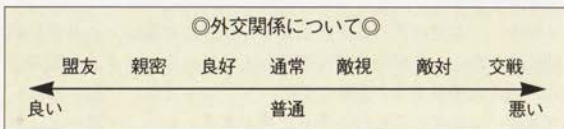 ◎外交関係について◎
盟友 親密 良好 通常 敵視 敵対 交戦
良い 普通 悪い